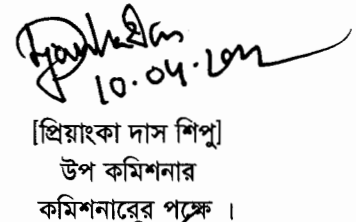 10.04.২০২২
[প্রিয়াংকা দাস শিপু]
উপ কমিশনার
কমিশনারের পক্ষে ।